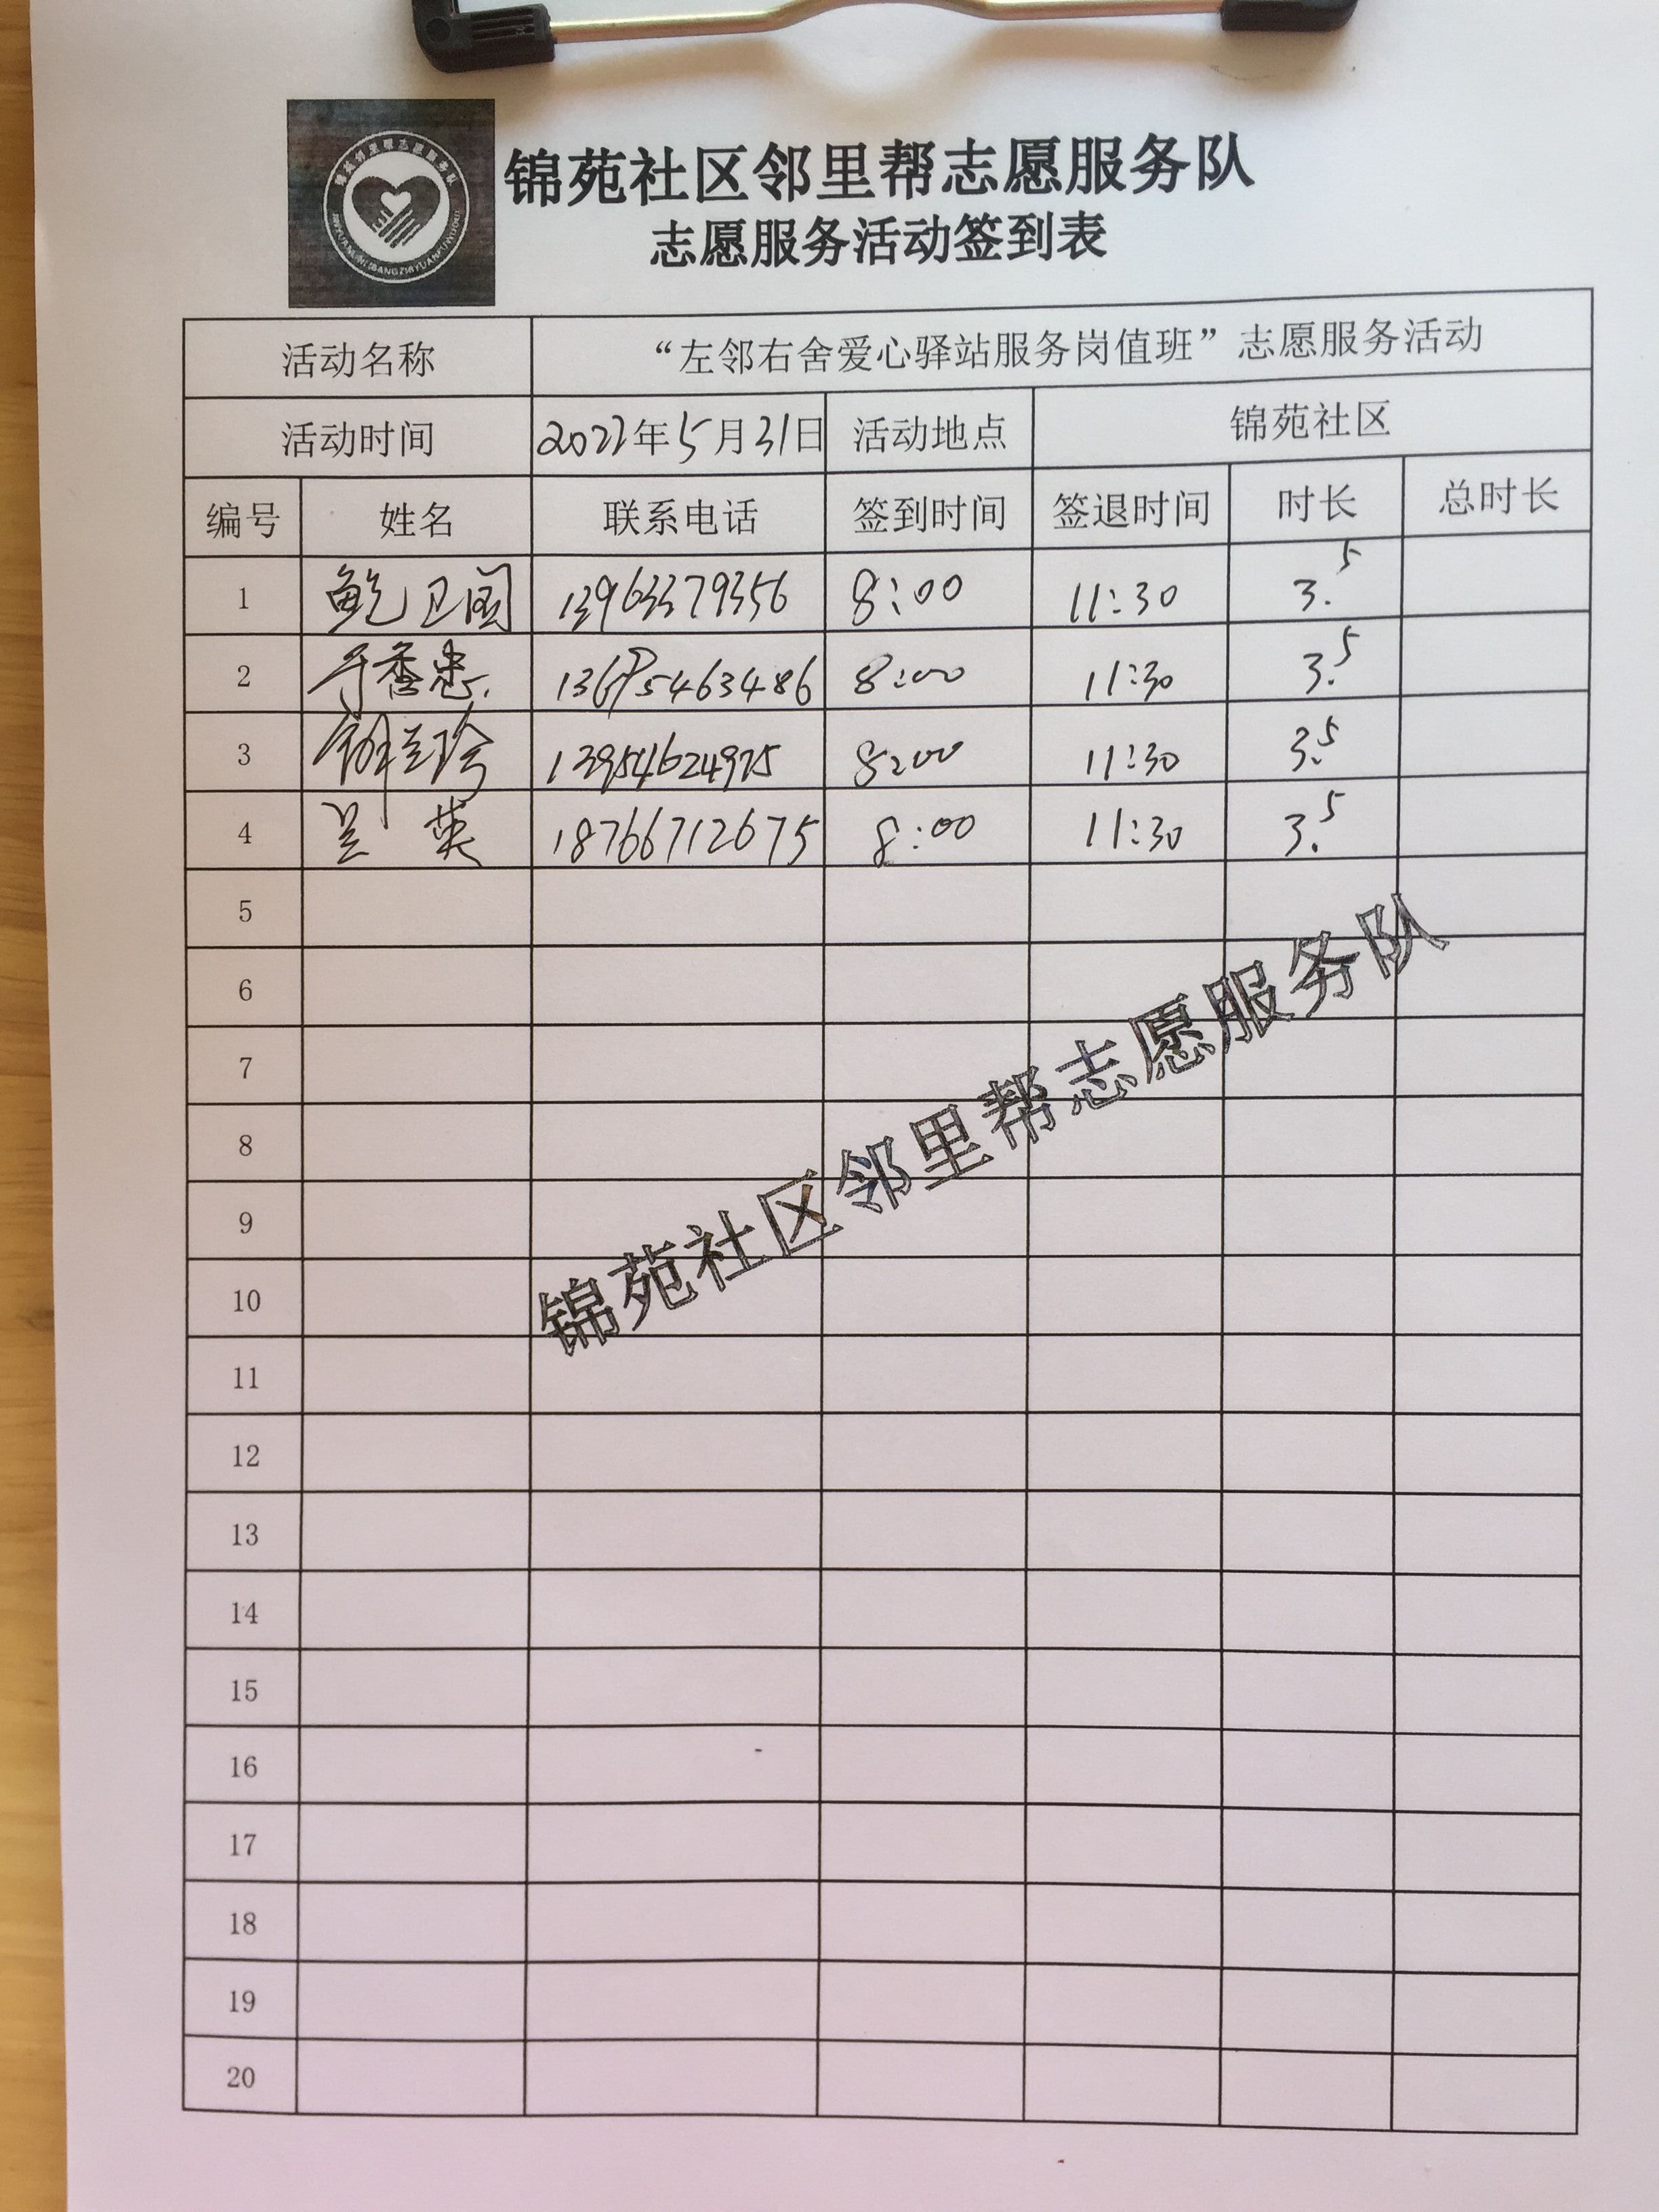 锦苑社区邻里帮志愿服务队
志愿服务活动签到表
活动名称 “左邻右舍爱心驿站服务岗值班”志愿服务活动
活动时间 2022年5月31日 活动地点 锦苑社区
编号 姓名 联系电话 签到时间 签退时间 时长 总时长
1 鲍卫国 13963379356 8:00 11:30 3.5
2 于香忠 5463486 8:00 11:30 3.5
3 兰珍 13954624975 8:00 11:30 3.5
4 吴英 18766712675 8:00 11:30 3.5
5
6
7
8
9
10
11
12
13
14
15
16
17
18
19
20
锦苑社区邻里帮志愿服务队